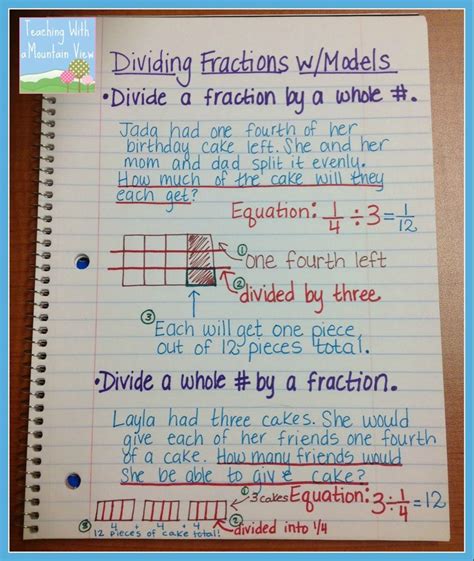 Teaching With
a Mountain View
Dividing Fractions w/Models
•Divide a fraction by a whole #.
Jada had one fourth of her
birthday cake left. She and her
mom and dad split it evenly.
How much of the cake will they
each get?
Equation: 1/4 ÷ 3 = 1/12
① one fourth left
② divided by three
③
Each will get one piece
out of 12 pieces total.
•Divide a whole # by a fraction.
Layla had three cakes. She would
give each of her friends one fourth
of a cake. How many friends would
she be able to give cake?
① 3 cakes Equation: 3 ÷ 1/4 = 12
4 + 4 + 4 ② divided into 1/4
③ 12 pieces of cake total!